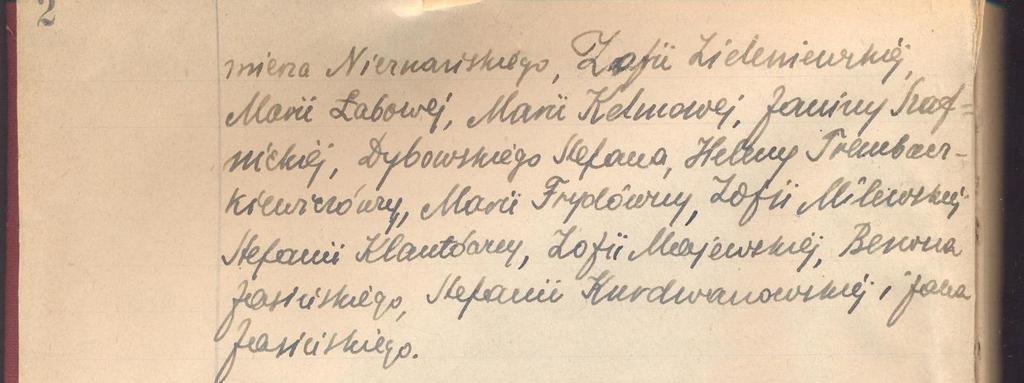 2
mierza Nieznańskiego, Zofii Zieleniewskiej,
Marii Łabowej, Marii Kelmowej, Janiny Szaf=
nickiej, Dybowskiego Stefana, Heleny Trembacz-
kiewiczówny, Marii Frydówny, Zofii Milewskiej
Stefanii Klautówny, Zofii Majewskiej, Benona
Jasińskiego, Stefanii Kurdwanowskiej i Jana
Jasińskiego.